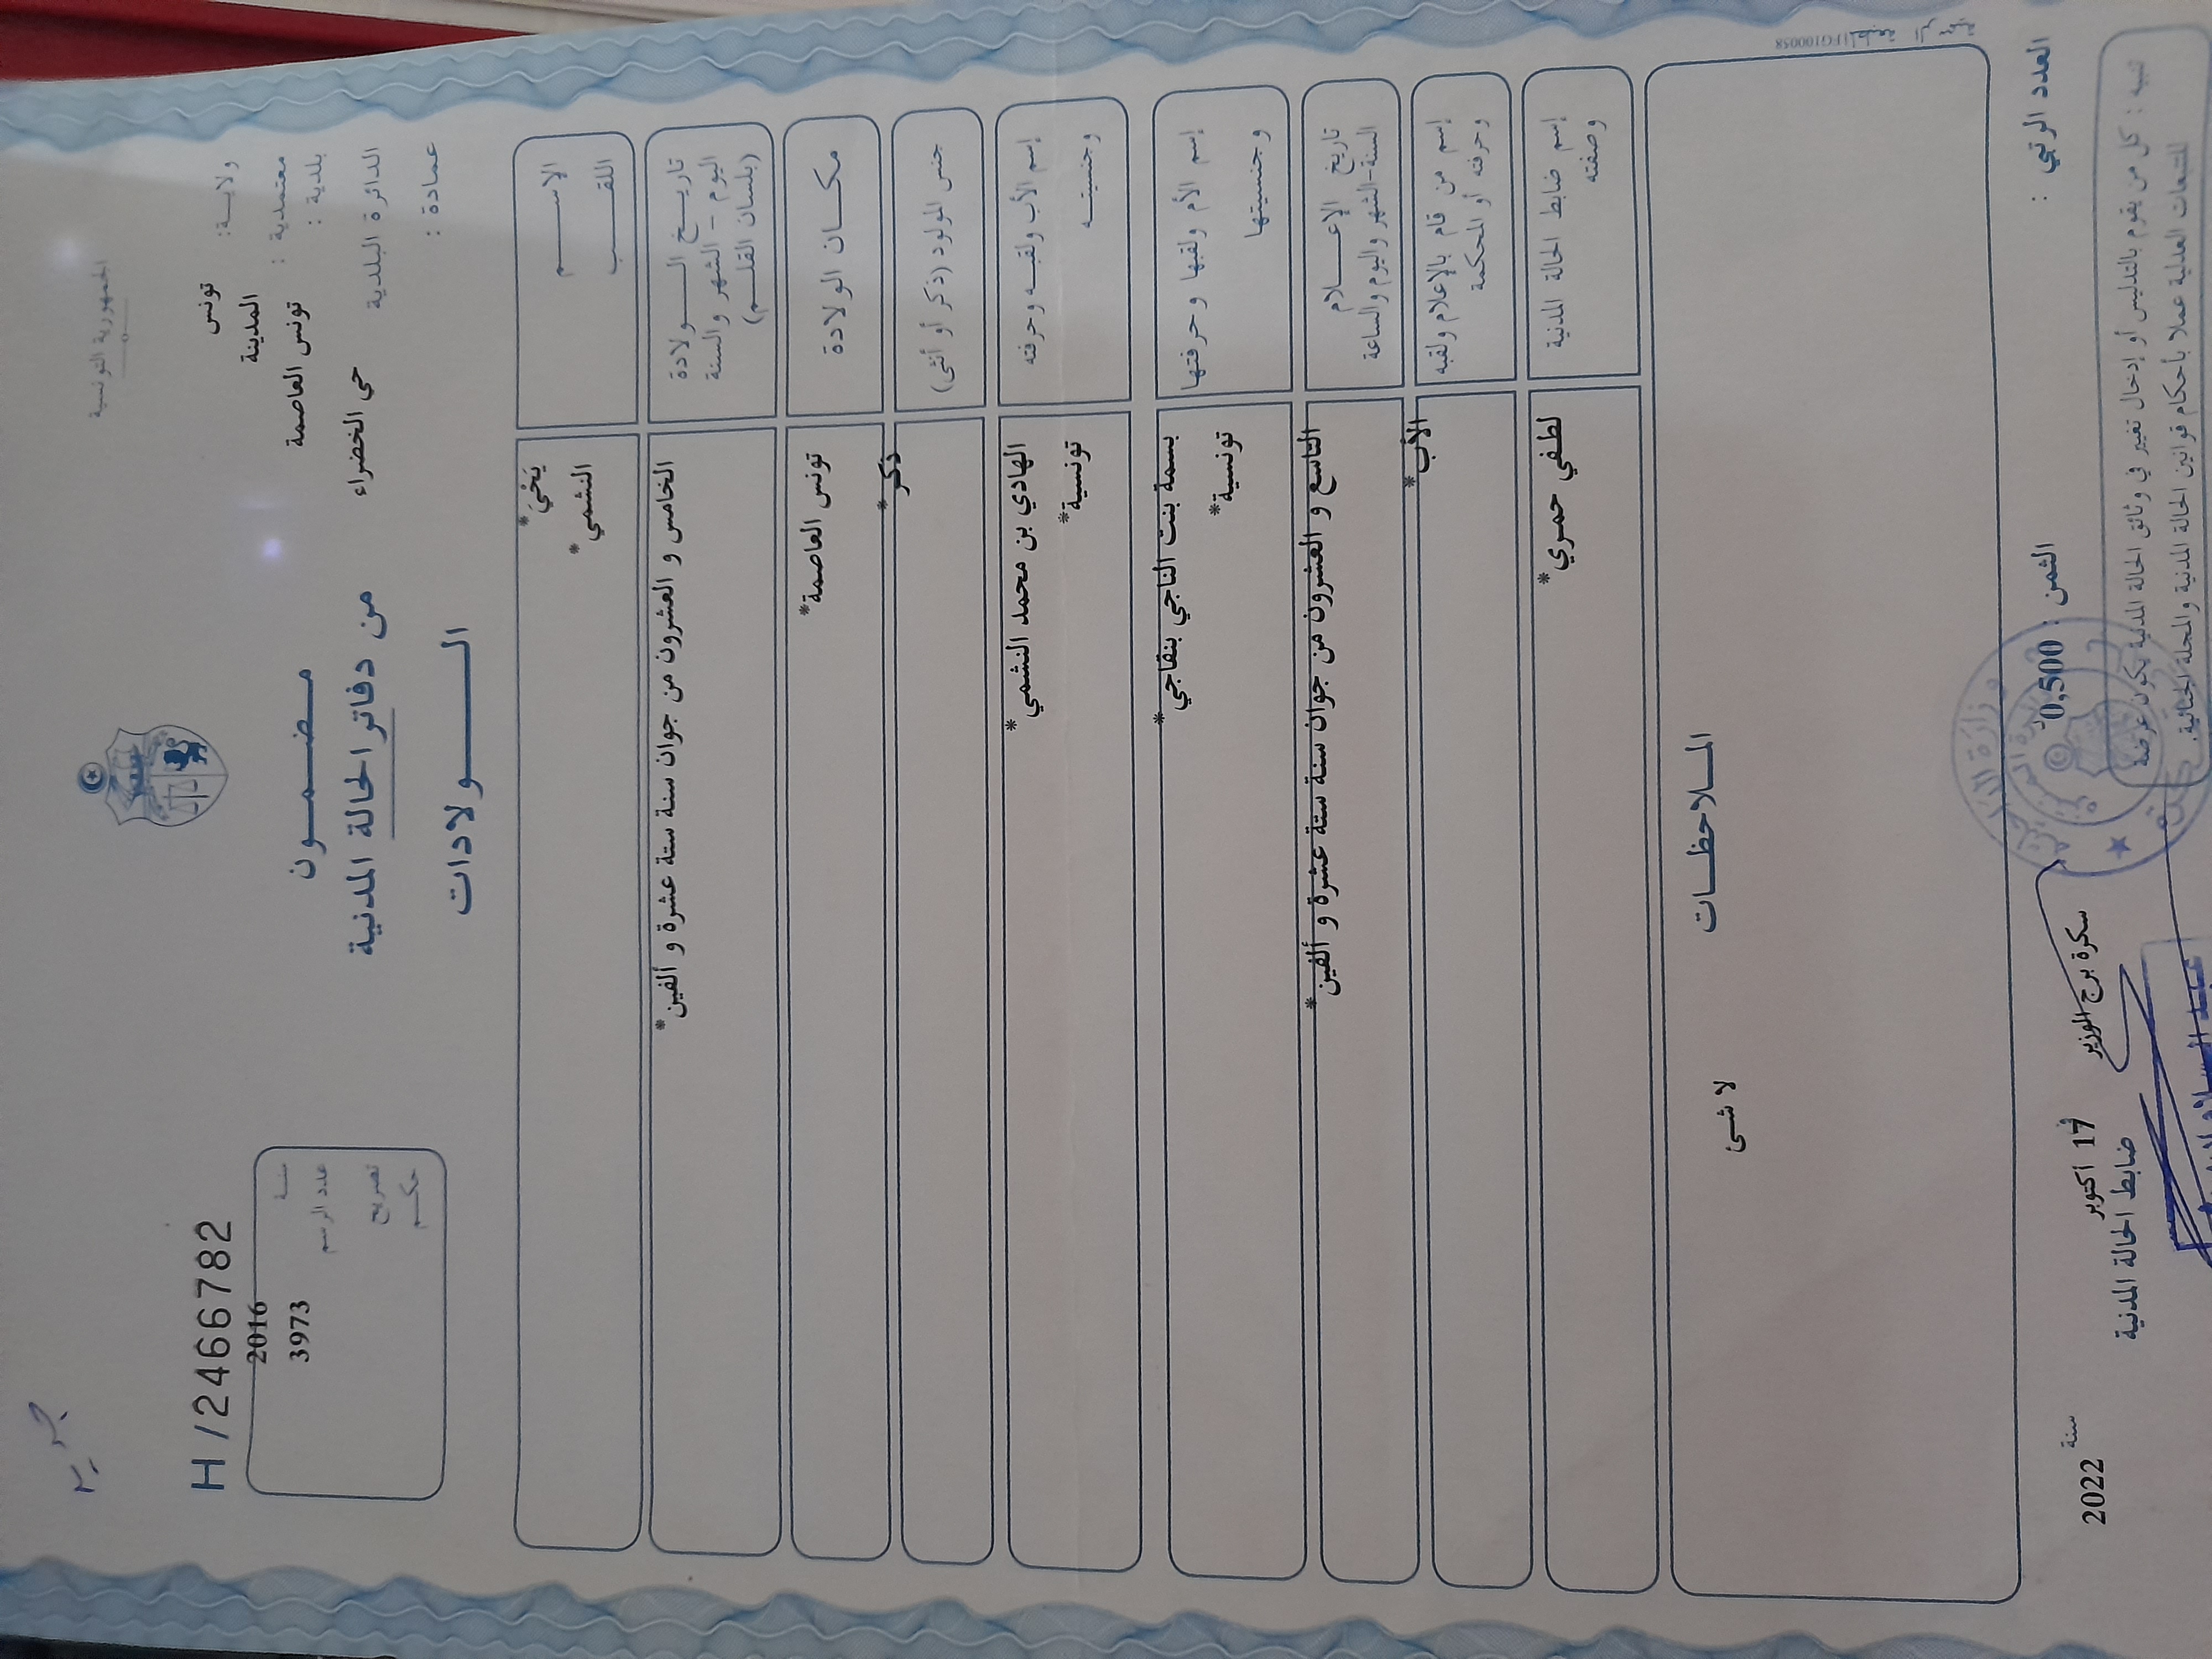 الجمهورية التونسية
ولايــة: تونس
معتمدية : المدينة
بلدية : تونس العاصمة
الدائرة البلدية حي الخضراء
عمادة :
مـضـمـــون
من دفاتر الحالة المدنية
الـــولادات
H/2466782
سنـة 2016
عدد الرسم 3973
تصريح
حكـم
الإســـم يَحْيَ*
اللقـــب النشمي*
تاريـــخ الــــولادة
اليوم - الشهر والسنة
(بلسان القلـــم)
الخامس و العشرون من جوان سنة ستة عشرة و ألفين*
مكـــان الولادة تونس العاصمة*
جنس المولود (ذكر أو أنثى) ذكر*
إسم الأب ولقبــه وحرفته الهادي بن محمد النشمي*
وجنسيتــه تونسية*
إسم الأم ولقبها وحرفتها بسمة بنت الناجي بنقاجي*
وجنسيتها تونسية*
تاريخ الإعـــلام
السنة-الشهر واليوم والساعة
التاسع و العشرون من جوان سنة ستة عشرة و ألفين*
إسم من قام بالإعلام ولقبه
وحرفته أو المحكمة
الأب*
إسم ضابط الحالة المدنية لطفي حمري*
وصفته
الملاحظـــات
لا شئ
FG100058
العدد الرتبي :
الثمن : 0,500
سكرة برج الوزير في 17 اكتوبر سنة 2022
ضابط الحالة المدنية
تنبيه : كل من يقوم بالتدليس أو إدخال تغيير في وثائق الحالة المدنية يكون عرضة
للتتبعات العدلية عملا بأحكام قوانين الحالة المدنية والمجلة الجنائية.